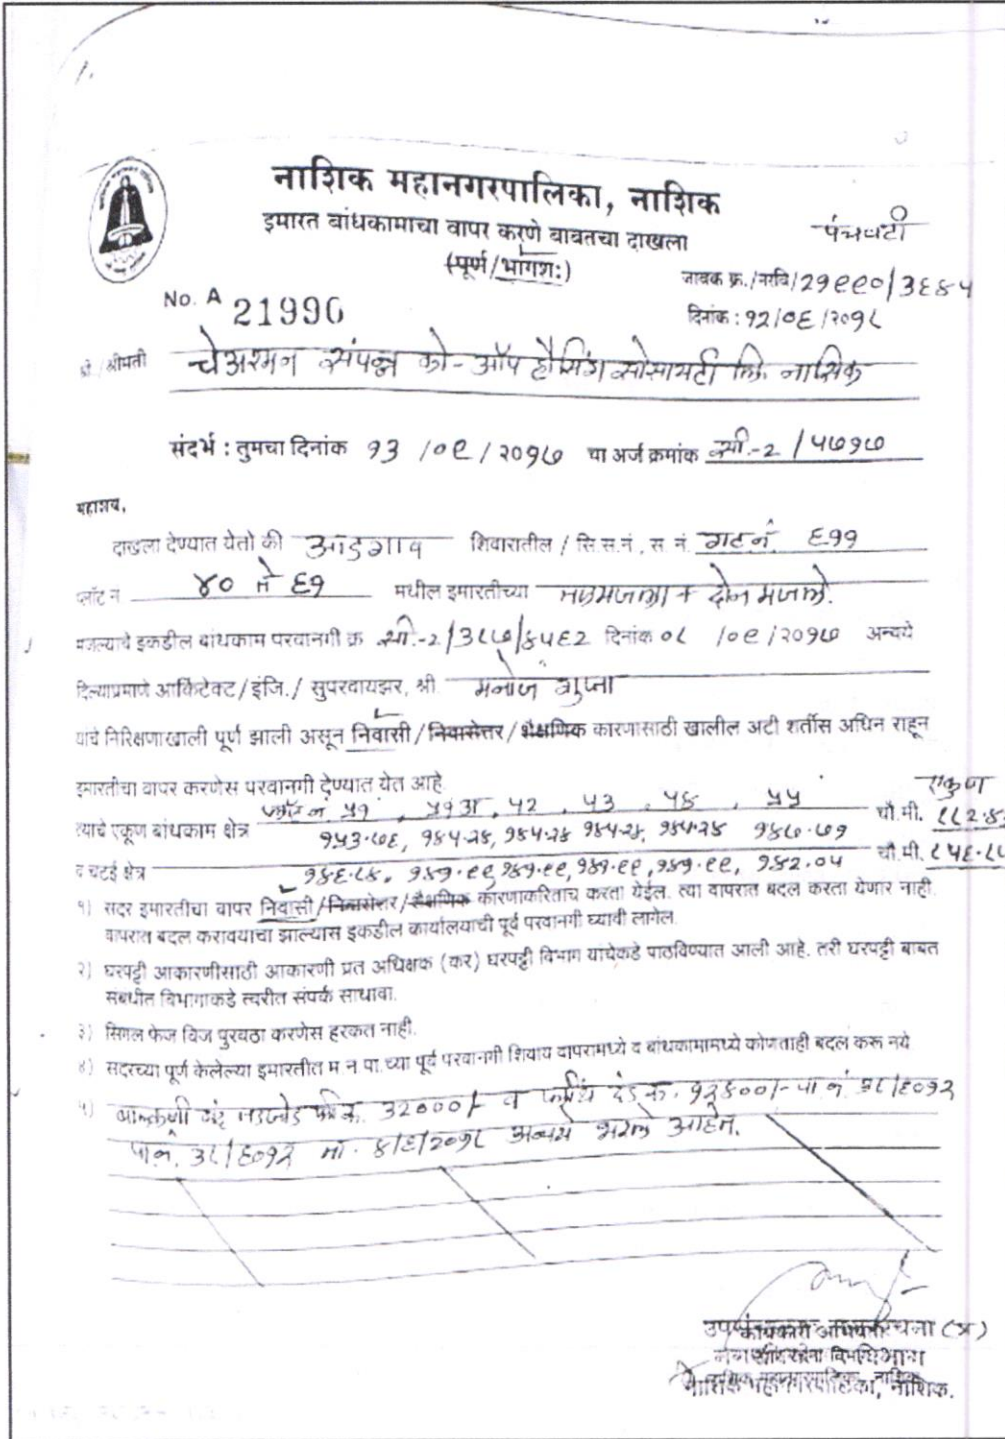 नाशिक महानगरपालिका, नाशिक
इमारत बांधकामाचा वापर करणे बाबतचा दाखला
(पूर्ण/भागशः)
पंचवटी
No. A 21990
जावक क्र./नरवि/21990/3645
दिनांक : १२/०६/२०१८
श्री./श्रीमती चेअरमन संपन्न को-ऑप हौसिंग सोसायटी लि. नासिक
संदर्भ : तुमचा दिनांक १३ /०९/ २०१७ चा अर्ज क्रमांक सी.-2 / ५७१७
महाशय,
दाखला देण्यात येतो की आडगाव शिवारातील / सि.स.नं., स. नं. गट नं. ६११
प्लॉट न ४० ते ६१ मधील इमारतीच्या तळमजला + दोन मजले.
मजल्याचे इकडील बांधकाम परवानगी क्र सी.-2/३८७/४५६२ दिनांक ०८ /०९/२०१७ अन्वये
दिल्याप्रमाणे आर्किटेक्ट/इंजि./ सुपरवायझर, श्री मनोज गुप्ता
यांचे निरिक्षणाखाली पूर्ण झाली असून निवासी/निवासेत्तर/शैक्षणिक कारणासाठी खालील अटी शर्तीस अधिन राहून
इमारतीचा वापर करणेस परवानगी देण्यात येत आहे.
प्लॉट नं ५१ , ५१अ , ५२ , ५३ , ५४ , ५५ एकुण
त्याचे एकूण बांधकाम क्षेत्र १५३.७६, १४५.२४, १४५.२४ १४५.२४, १४५.२४ १४७.७१ चौ.मी.
व चटई क्षेत्र १४६.८४, १४१.९९, १४१.९९, १४१.९९, १४१.९९, १४२.०५ चौ.मी.
१) सदर इमारतीचा वापर निवासी/निवासेत्तर/शैक्षणिक कारणाकरिताच करता येईल. त्या वापरात बदल करता येणार नाही.
वापरात बदल करावयाचा झाल्यास इकडील कार्यालयाची पूर्व परवानगी घ्यावी लागेल.
२) घरपट्टी आकारणीसाठी आकारणी प्रत अधिक्षक (कर) घरपट्टी विभाग यांचेकडे पाठविण्यात आली आहे. तरी घरपट्टी बाबत
संबधीत विभागाकडे त्वरीत संपर्क साधावा.
३) सिंगल फेज विज पुरवठा करणेस हरकत नाही.
४) सदरच्या पूर्ण केलेल्या इमारतीत म न पा.च्या पूर्व परवानगी शिवाय वापरामध्ये व बांधकामामध्ये कोणताही बदल करू नये
५) बाल्कणी बंद 32000/- व दंड रु. १२४००/- पा.नं. ३८/६०१२
पा.नं. ३८/६०१२ ता. ४/६/२०१८ अन्वये भरले आहेत.
नाशिक महानगरपालिका, नाशिक.